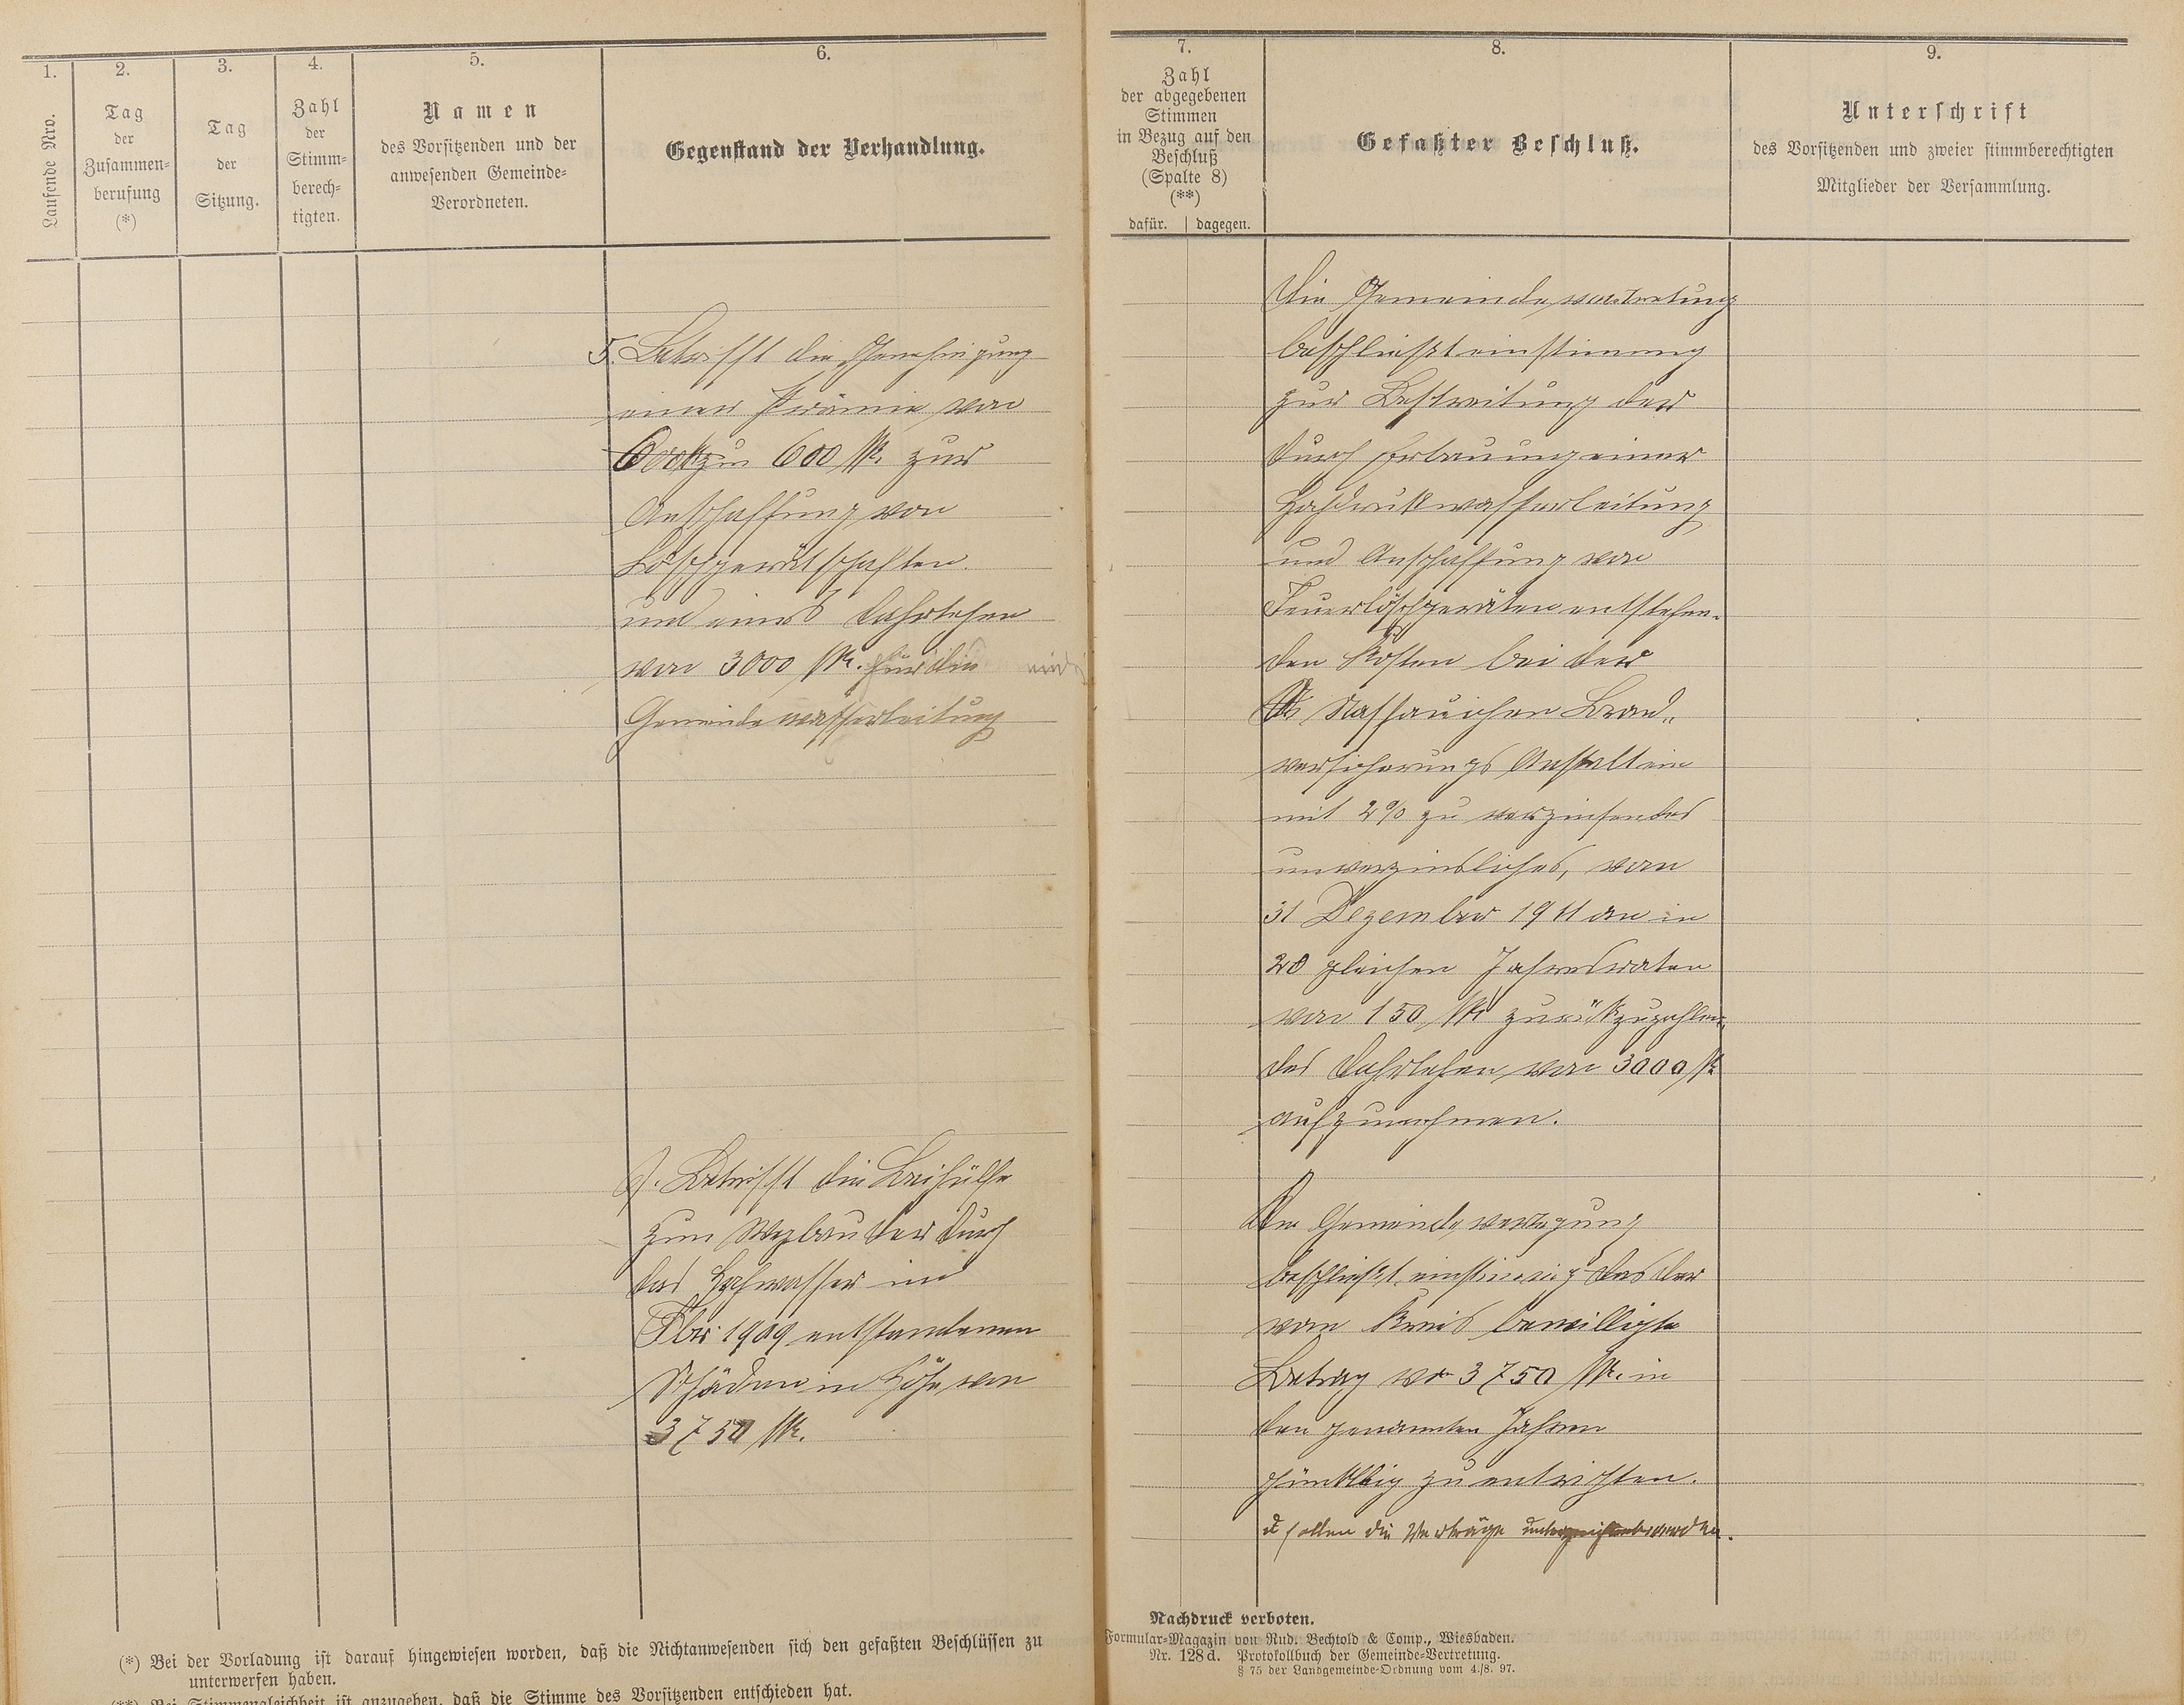 1.
Laufende Nro.
2.
Tag
der
Zusammen-
berufung
(*)
3.
Tag
der
Sitzung.
4.
Zahl
der
Stimm-
berech-
tigten.
5.
Namen
des Vorsitzenden und der
anwesenden Gemeinde-
Verordneten.
6.
Gegenstand der Verhandlung.
5. Betrifft die Genehmigung
einer Prämie von
600 M. zur
Anschaffung von
Löschgerätschaften.
und eines Dahrlehen
von 3000 M. für die
Gemeindewasserleitung
Betrifft die Beihülfe
zum Wegbau der durch
das Hochwasser im
Fbr 1909 entstandenen
Schäden in Höhe von
3750 M.
(*) Bei der Vorladung ist darauf hingewiesen worden, daß die Nichtanwesenden sich den gefaßten Beschlüssen zu
unterwerfen haben.
(**) Bei Stimmengleichheit ist anzugeben, daß die Stimme des Vorsitzenden entschieden hat.
7.
Zahl
der abgegebenen
Stimmen
in Bezug auf den
Beschluß
(Spalte 8)
(**)
dafür. dagegen.
8.
Gefaßter Beschluß.
Die Gemeindevertretung
beschließt einstimmig
zur Bestreitung der
durch Erbauung einer
Hochdruckwasserleitung
und Anschaffung von
Feuerlöschgeräten entstehen-
den Kosten bei der
Nassauischen Brand„
versicherungs Anstalt ein
mit 2% zu verzinsendes
unverzinsliches, vom
31 Dezember 1911 an in
20 gleichen Jahresraten
von 150 M zurückzuzahlen
des Dahrlehen von 3000 M
aufzunehmen.
Die Gemeinde
beschließt einstimmig das der
vom Kreis bewilligte
Betrag von 3750 M. in
den genannten Jahren
zu entrichten.
sollen die Verträge unterzeichnet werden.
9.
Unterschrift
des Vorsitzenden und zweier stimmberechtigten
Mitglieder der Versammlung.
Nachdruck verboten.
Formular-Magazin von Rud. Bechtold & Comp., Wiesbaden.
Nr. 128 d. Protokollbuch der Gemeinde-Vertretung.
§ 75 der Landgemeinde-Ordnung vom 4./8. 97.